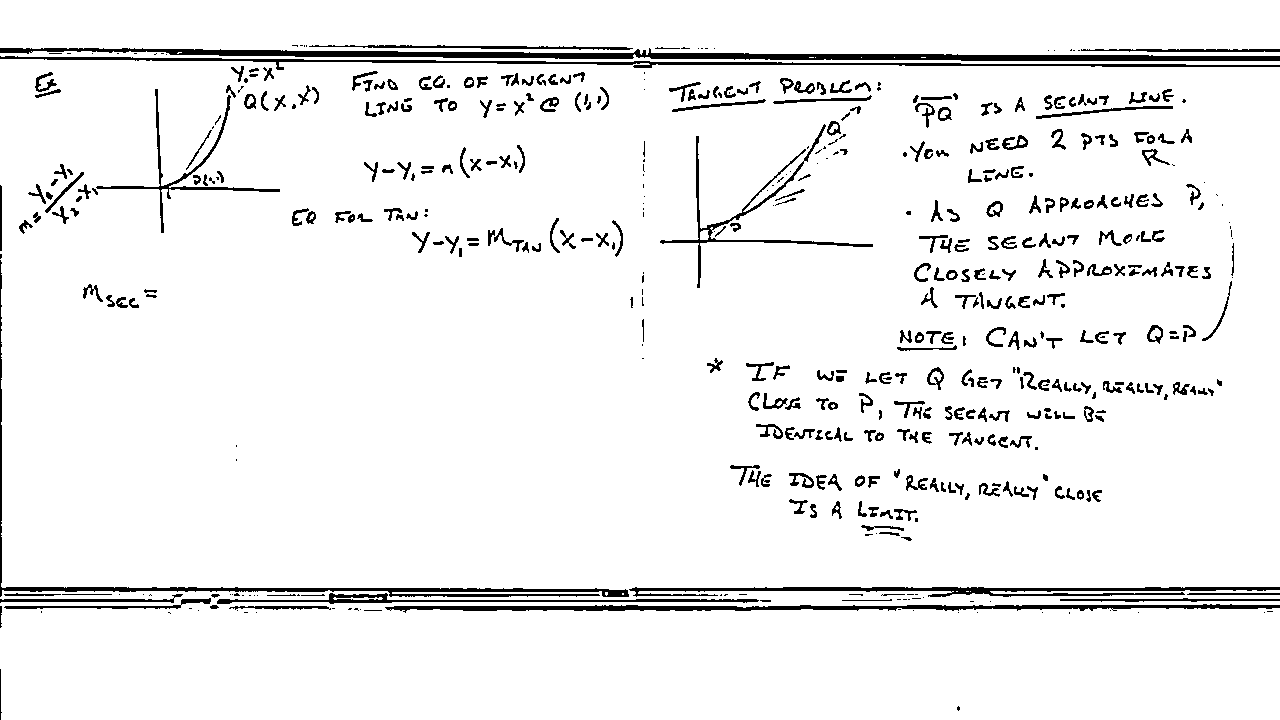 Ex
Y=X²
Q(X,X²)
P(1,1)
1
m=Y₂-Y₁/X₂-X₁
FIND EQ. OF TANGENT
LINE TO Y=X² @ (1,1)
Y-Y₁=m(X-X₁)
EQ FOR TAN:
Y-Y₁=M_TAN(X-X₁)
M_SEC=
TANGENT PROBLEM:
Q
P
"PQ" IS A SECANT LINE.
·YOU NEED 2 PTS FOR A
LINE.
· AS Q APPROACHES P,
THE SECANT MORE
CLOSELY APPROXIMATES
A TANGENT.
NOTE: CAN'T LET Q=P
* IF WE LET Q GET "REALLY, REALLY, REALLY"
CLOSE TO P, THE SECANT WILL BE
IDENTICAL TO THE TANGENT.
THE IDEA OF "REALLY, REALLY" CLOSE
IS A LIMIT.